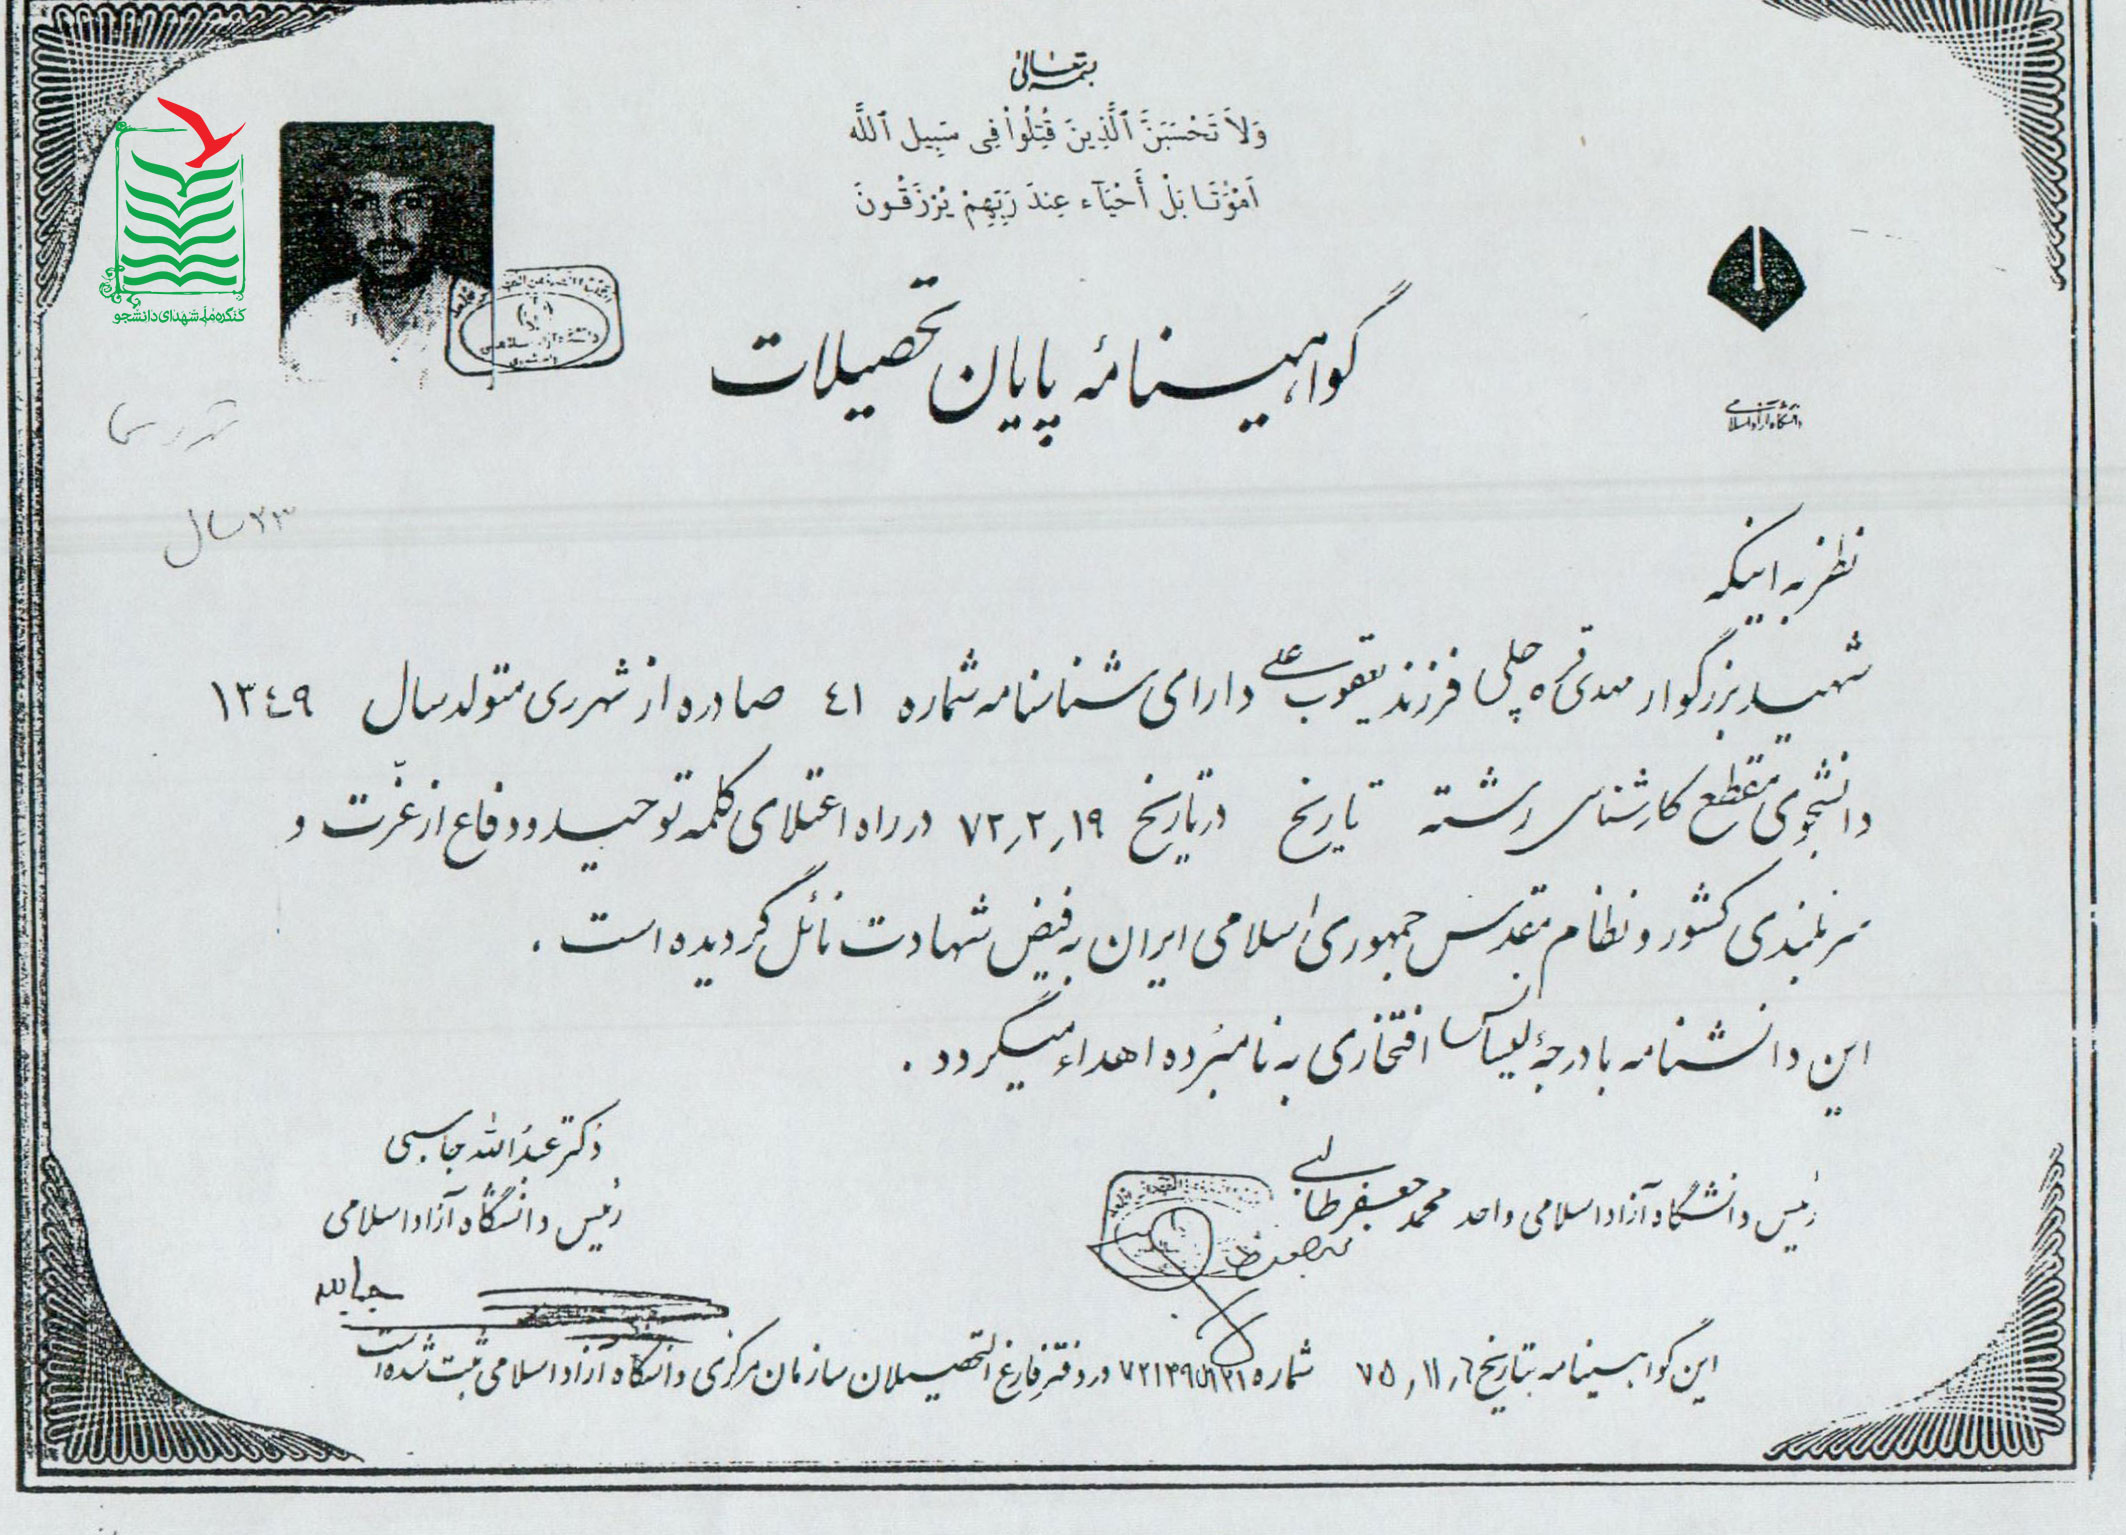 بسمه تعالی
وَلَا تَحْسَبَنَّ ٱلَّذِينَ قُتِلُوا۟ فِى سَبِيلِ ٱللَّه
اَمْوَٰتَا بَلْ أَحْيَآء عِندَ رَبِّهِمْ يُرْزَقُونَ
کنگره ملی شهدای دانشجو
گواهینامهٔ پایان تحصیلات
دانشگاه آزاد اسلامی
۲۳ سال
نظر به اینکه
شهید بزرگوار مهدی قره چلی فرزند یعقوب علی دارای شناسنامه شماره ٤١ صادره از شهرری متولد سال ١٣٤٩
دانشجوی مقطع کارشناسی رشته تاریخ در تاریخ ٧٢٫٢٫١٩ در راه اعتلای کلمه توحید و دفاع از عزّت و
سربلندی کشور و نظام مقدس جمهوری اسلامی ایران به فیض شهادت نائل گردیده است .
این دانشنامه با درجهٔ لیسانس افتخاری به نامبرده اهداء میگردد .
رئیس دانشگاه آزاد اسلامی واحد محمد جعفر طالبی
دکتر عبدالله جاسبی
رئیس دانشگاه آزاد اسلامی
این گواهینامه بتاریخ ٧٥٫١١٫٦ شماره در دفتر فارغ التحصیلان سازمان مرکزی دانشگاه آزاد اسلامی ثبت شده است